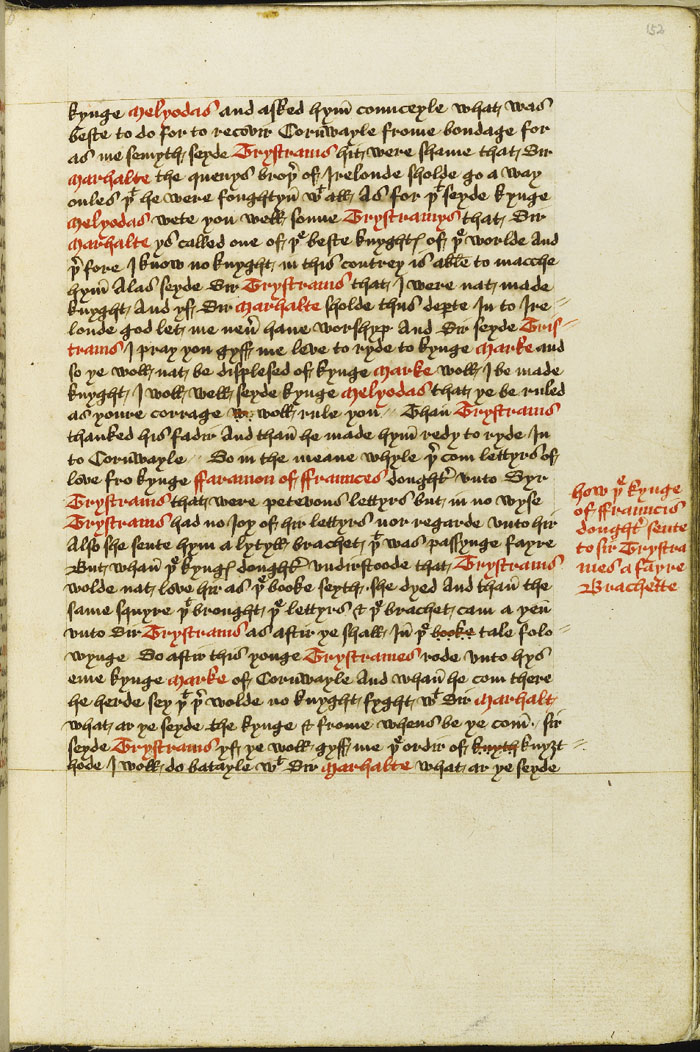 152
kynge Melyodas and asked hym̄ counceyle what was
beste to do for to recovir Cornwayle frome bondage for
as me semyth seyde Trystrams hit were shame that Sir
Marhalte the quenys broþ̉ of Irelonde sholde go a way
onles þᵗ he were foughtyn̄ wᵗ all As for þᵗ seyde kynge
Melyodas wete you well sonne Trystramys that Sir
Marhalte ys called one of þᵉ beste knyghtꝭ of þᵉ worlde And
þ̉ fore I know no knyght in this contrey is able to macche
hym̄ Alas seyde Sir Trystrams that I were nat made
knyght And yf Sir Marhalte sholde thus dep̄te In to Ire=
londe god let me neu̓ haue worshyp And Sir seyde Tris=
trams I pray you gyff me leve to ryde to kynge Marke and
so ye woll nat be displesed of kynge Marke woll I be made
knyght I woll well seyde kynge Melyodas that ye be ruled
as youre corrage woll rule you Than̄ Trystrams
thanked his fadir And than̄ he made hym̄ redy to ryde In
to Cornwayle So in the meane whyle þ̉ com lettyrs of
love fro kynge ffaramon of ffraunces dought̉ vnto Syr
Trystrams that were peteuous lettyrs but in no wyse
Trystrams had no Ioy of hir lettyrs nor regarde vnto hir
Also she sente hym̄ a lytyll brachet þᵗ was passynge fayre
But whan̄ þᵉ kyngꝭ dought̉ vndirstoode that Trystrams
wolde nat love hir as þᵉ booke seyth she dyed And than̄ the
same squyre þᵗ brought þᵉ lettyrs & þᵉ brachet cam a yen̄
vnto Sir Trystrams as aftir ye shall In̄ þᵉ booke tale folo=
wynge So aftir this yonge Trystrames rode vnto hys
eme kynge Marke of Cornwayle And whan̄ he com there
he herde sey þᵗ þ̉ wolde no knyght fyght wᵗ Sir Marhalt
what ar ye seyde the kynge & frome whens be ye com̄ sir
seyde Trystrams yf ye woll gyff me þᵉ ordir of knyth knyȝt=
hode I woll do batayle wᵗ Sir Marhalte what ar ye seyde
how þᵉ kynge
of ffraunces
dought̉ sente
to sir Trystra
mes a fayre
Brachette